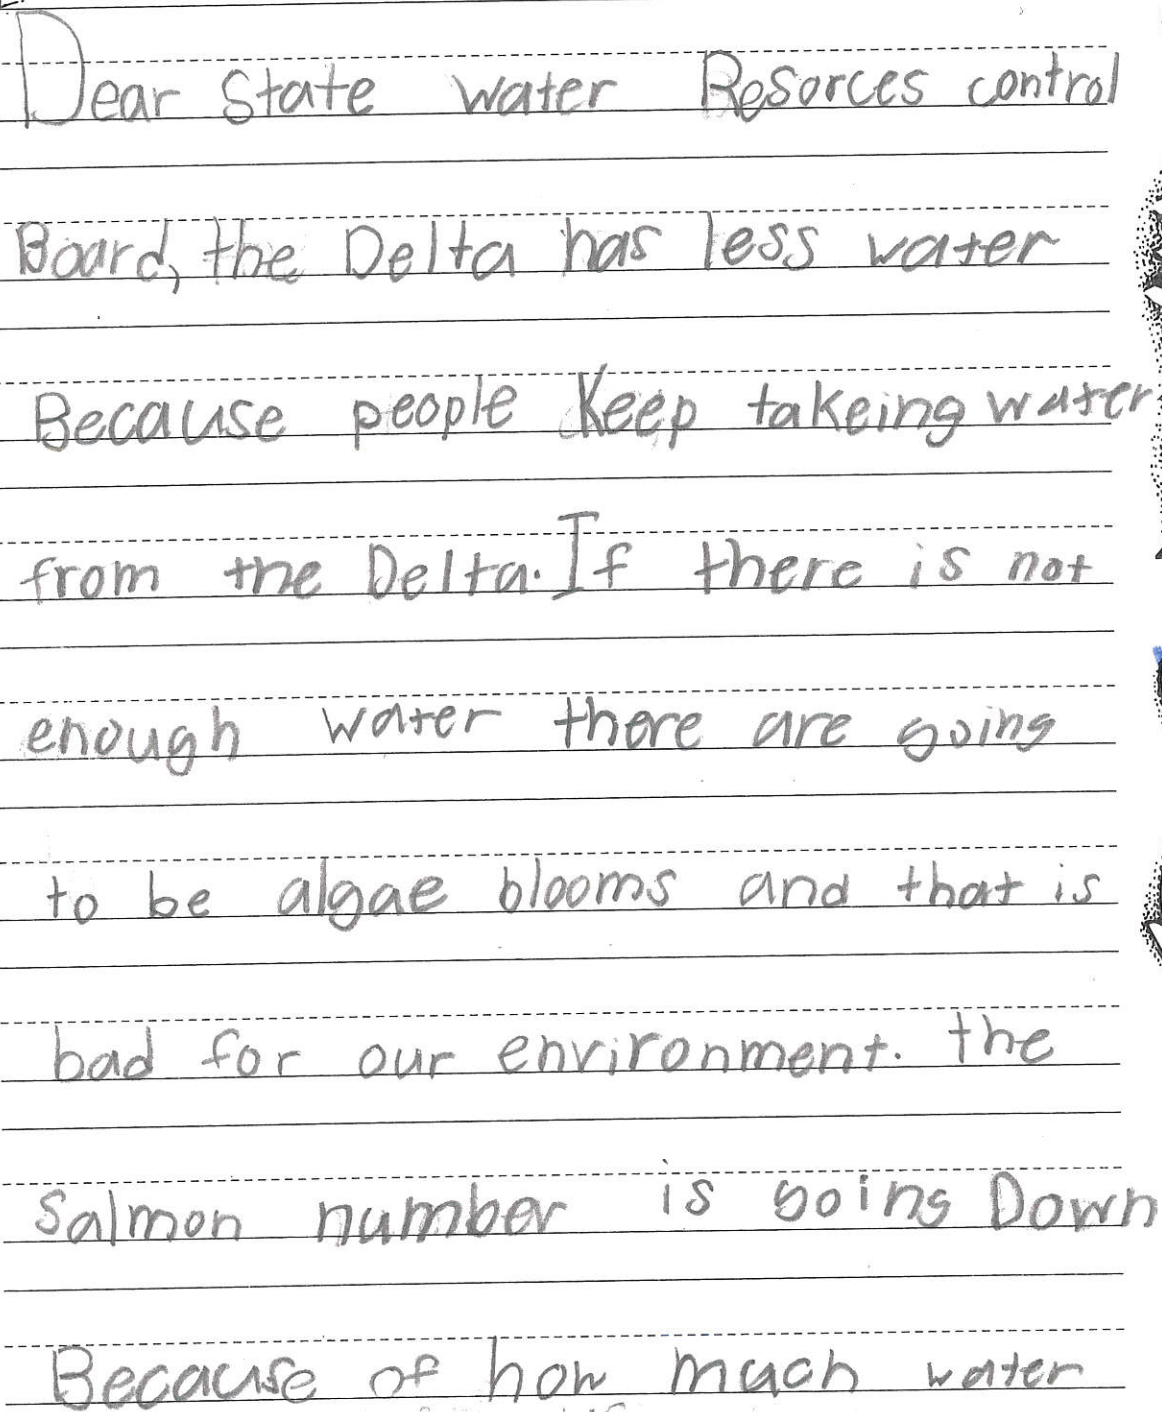 Dear State water Resorces control
Board, the Delta has less water
Because people Keep takeing water
from the Delta. If there is not
enough water there are going
to be algae blooms and that is
bad for our environment. the
Salmon number is going Down
Because of how much water